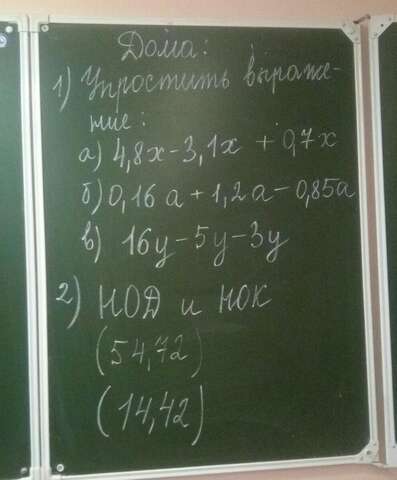 Дома:
1) Упростить выраже-
ние:
а) 4,8x-3,1x + 0,7x
б) 0,16a+1,2a-0,85a
в) 16y-5y-3y
2) НОД и НОК
(54,72)
(14,42)